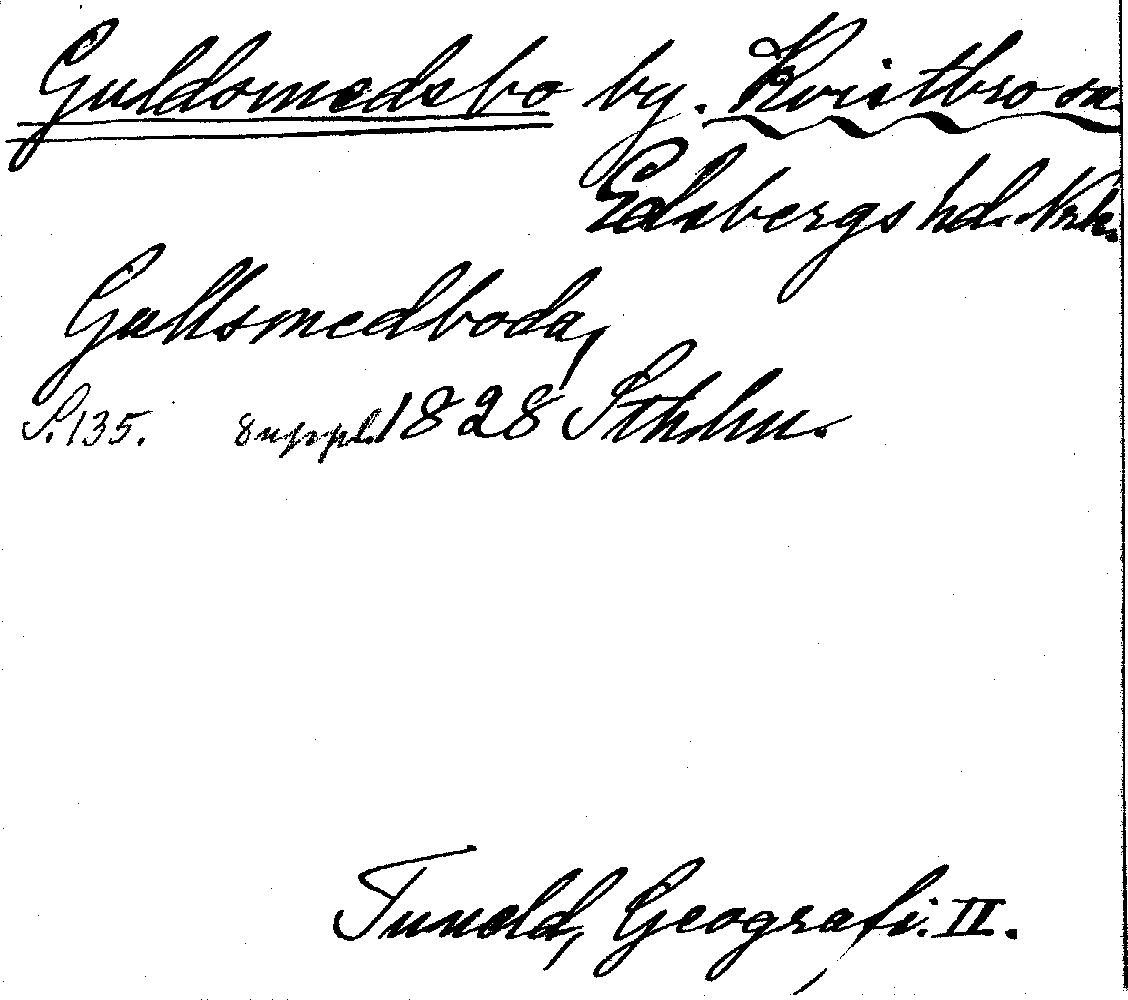 Guldsmedsbo by. Kvistbro sn
Edsbergs hd. Nrke.
Gullsmedboda,
S. 135. suppl. 1828 Sthlm.
Tuneld, Geografi. II.